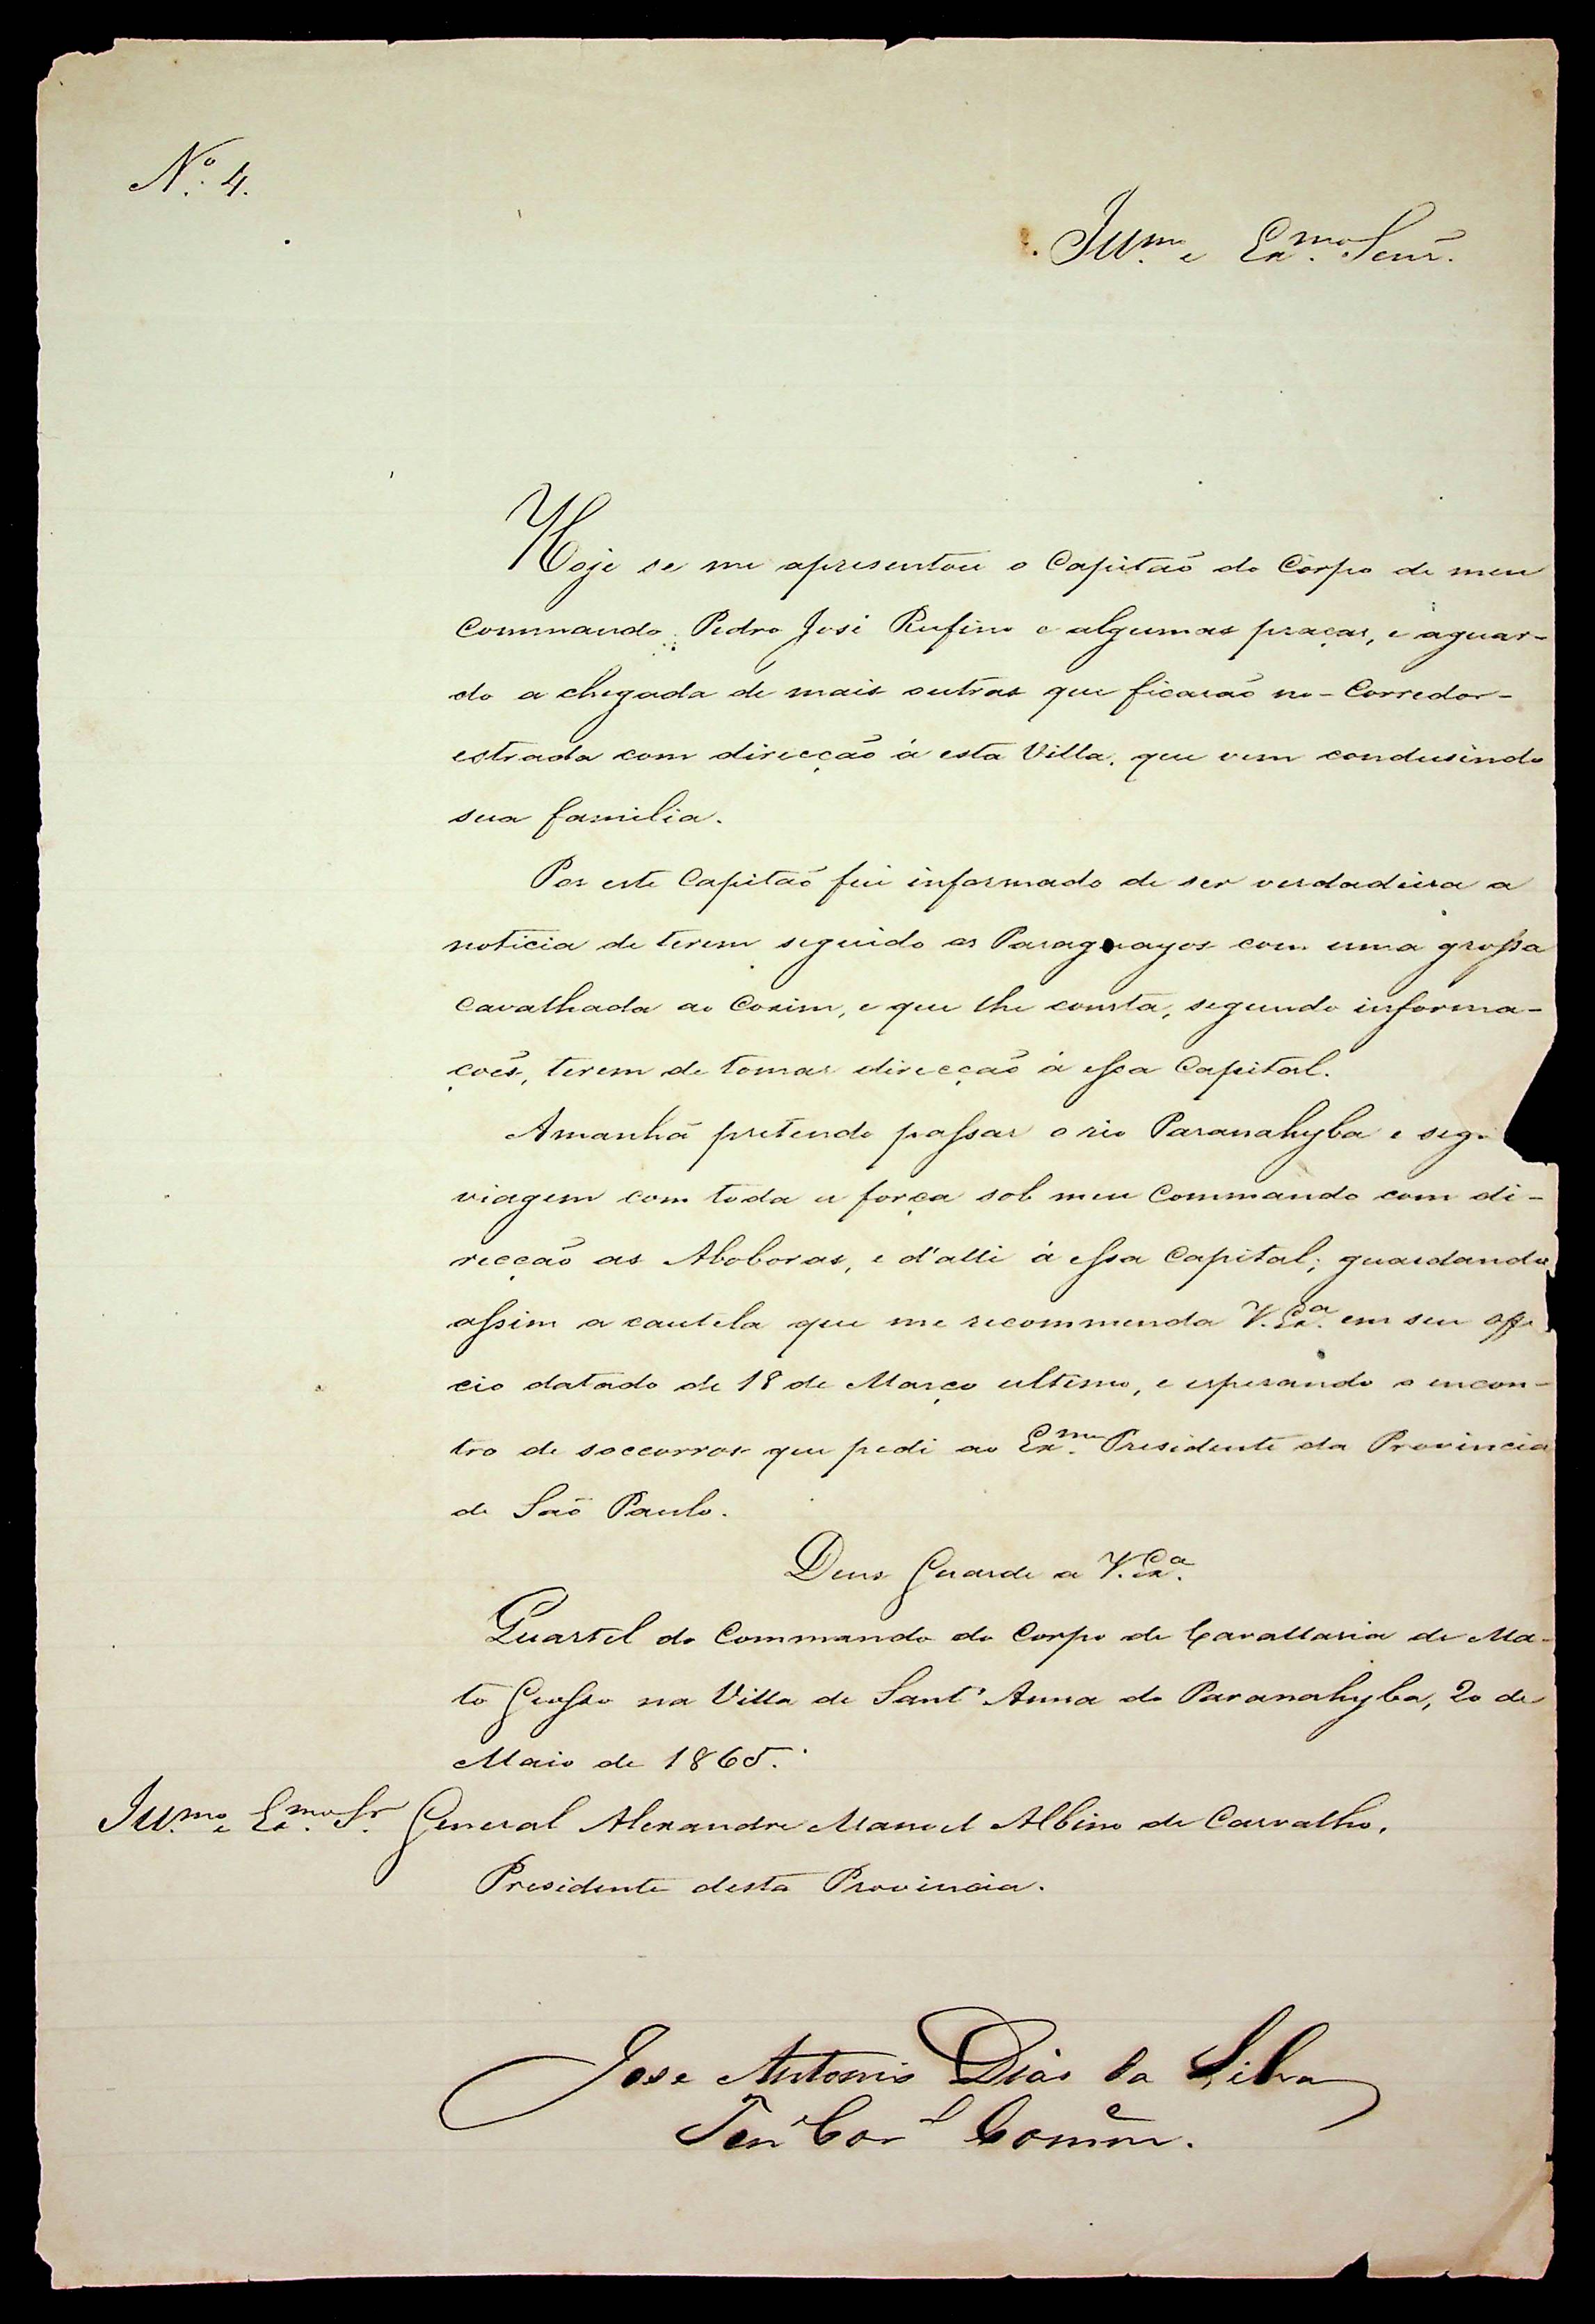 Nº 4.
Illmo e Exmo Senr.
Hoje se me apresentou o Capitaõ do Corpo de meu
Commando Pedro José Rufino e algumas praças, e aguar-
do a chegada de mais outras que ficaraõ no - Corredor -
estrada com direcçaõ á esta Villa, que vem condusindo
sua familia.
Por este Capitaõ fui informado de ser verdadeira a
noticia de terem seguido os Paraguayos com uma grossa
Cavalhada ao Coxim, e que lhe consta, segundo informa-
çoẽs, terem de tomar direcçaõ á essa Capital.
Amanhã pretendo passar o rio Paranahyba e seg
viagem com toda a força sob meu Commando com di-
recçaõ as Aboboras, e d'alli á essa Capital; guardando
assim a cautela que me recommenda V. Exa. em seu offi
cio datado de 18 de Março ultimo, e esperando o encon-
tro de soccorros que pedi ao Exmo Presidente da Provincia
de Saõ Paulo.
Deus Guarde a V. Exa.
Quartel do Commando do Corpo de Cavallaria de Ma-
to Grosso na Villa de Sant'Anna do Paranahyba, 20 de
Maio de 1865.
Illmo e Exmo Sr. General Alexandre Manoel Albino de Carvalho,
Presidente desta Provincia.
Jose Antonio Dias da Silva
Ten Corl Comẽ.